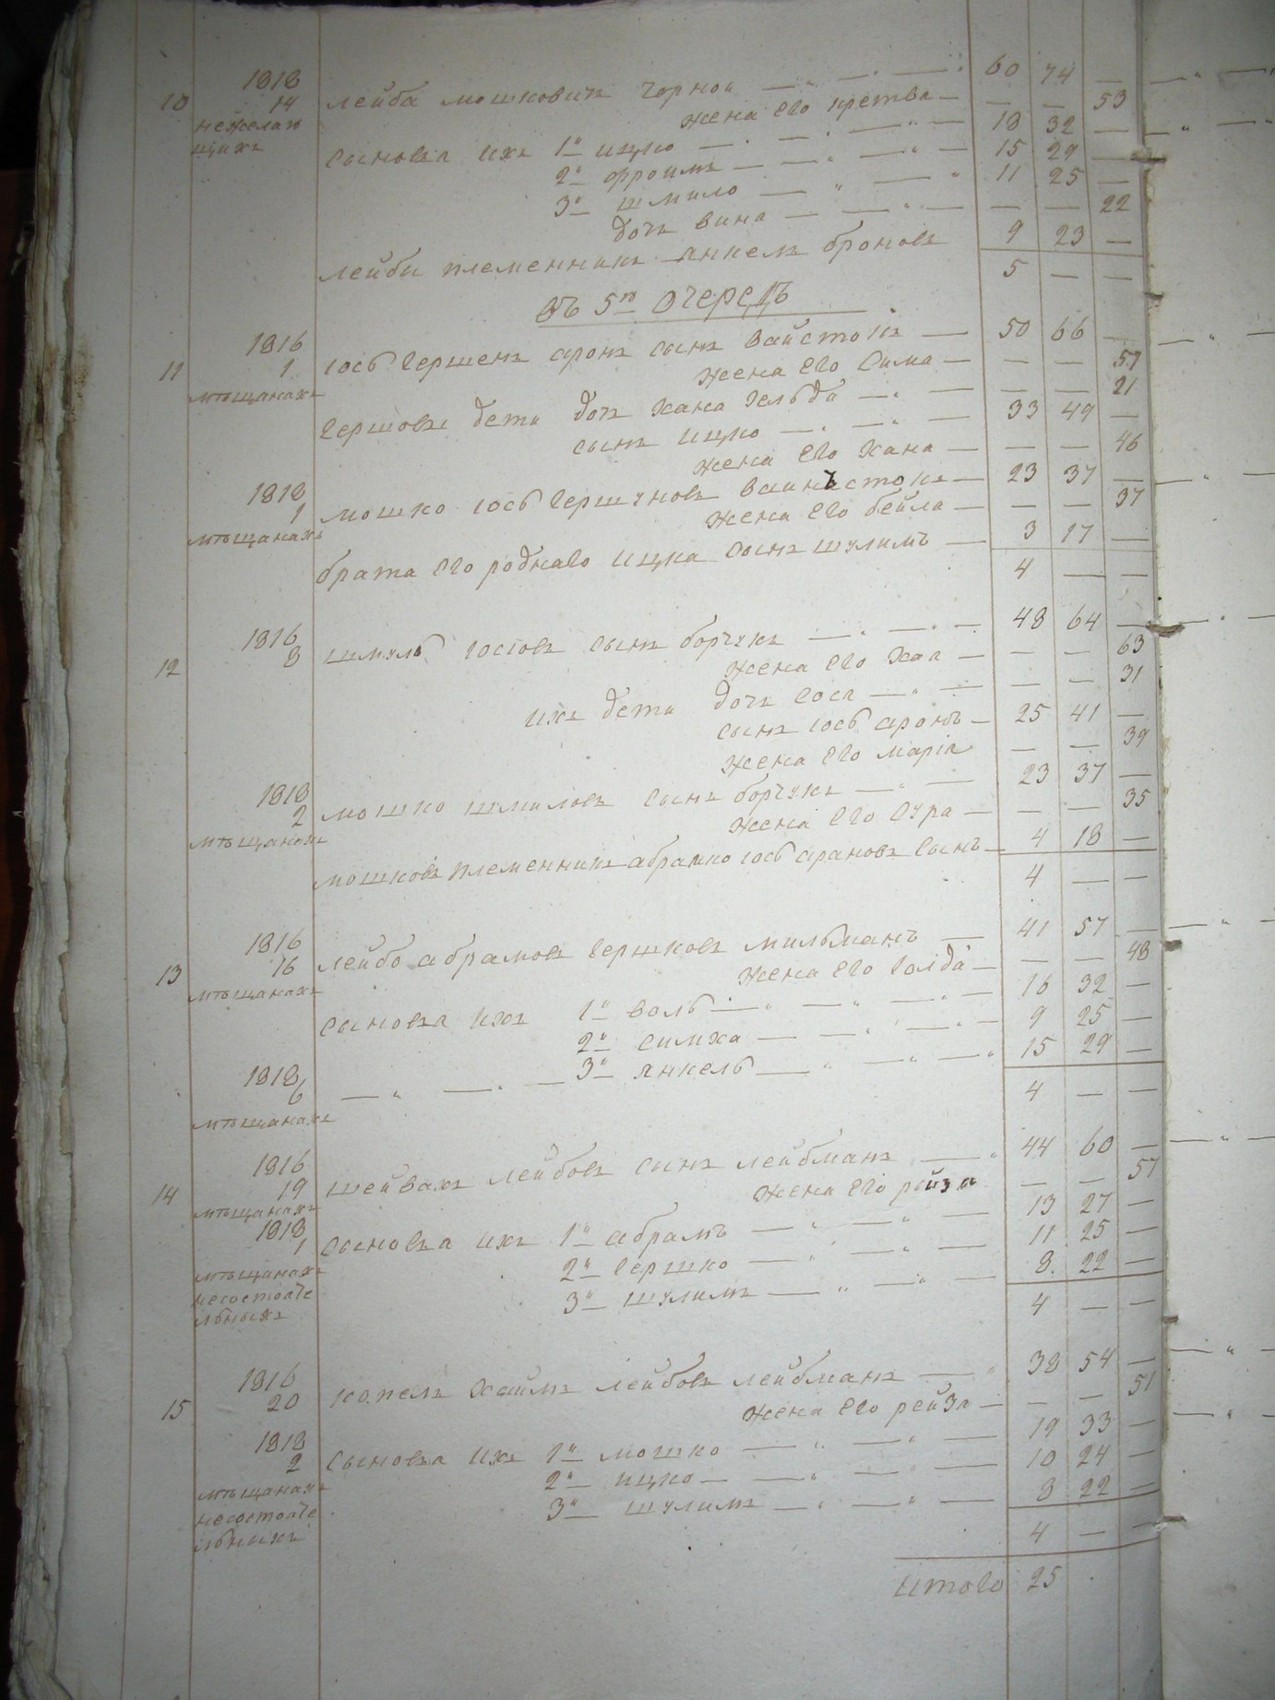 1818
10 14 лейба мошковичъ чорнои 60 74 —
нежелаю жена его кретва — — 53
щихъ сыновья ихъ 1й ицко 18 32 —
2й фроимъ 15 29 —
3й шмило 11 25 —
дочь вина — — 22
лейби племенникъ янкель броновъ 9 23 —
5 — —
въ 5ю очередь
1816
11 1 іось гершенъ аронъ сынъ вайстокъ 50 66 —
мѣщанахъ жена его сима — — 57
гершовы дети дочь хана гельда — — 21
сынъ ицко 33 49 —
жена его хана — — 46
1818
1 мошко іось гершуновъ вайнстокъ 23 37 —
мѣщанахъ жена его бейла — — 37
брата его роднаго ицка сынъ шулимъ 3 17 —
4 — —
1816
12 8 шмуль іосіовъ сынъ борчукъ 48 64 —
жена его хая — — 63
ихъ дети дочь сося — — 31
сынъ іось аронъ 25 41 —
жена его марія — — 39
1818
2 мошко шмиловъ сынъ борчукъ 23 37 —
мѣщанахъ жена его сура — — 35
мошковъ племенникъ абрамко іось арановъ сынъ 4 18 —
4 — —
1816
13 16 лейбо абрамовъ гершковъ мильманъ 41 57 —
мѣщанахъ жена его голда — — 48
сыновья ихъ 1й воль 16 32 —
2й симха 9 25 —
1818 — „ — „ — 3й янкель 15 29 —
6 4 — —
мѣщанахъ
1816
14 19 шейвахъ лейбовъ сынъ лейбманъ 44 60 —
мѣщанахъ жена его рейза — — 57
1818
1 сыновья ихъ 1й абрамъ 13 27 —
мѣщанахъ 2й гершко 11 25 —
несостояте 3й шулимъ 8 22 —
льныхъ 4 — —
1816
15 20 копель хаимъ лейбовъ лейбманъ 38 54 —
жена его рейза — — 51
1818
2 сыновья ихъ 1й мошко 19 33 —
мѣщанахъ 2й ицко 10 24 —
несостояте 3й шулимъ 8 22 —
льныхъ 4 — —
итого 25